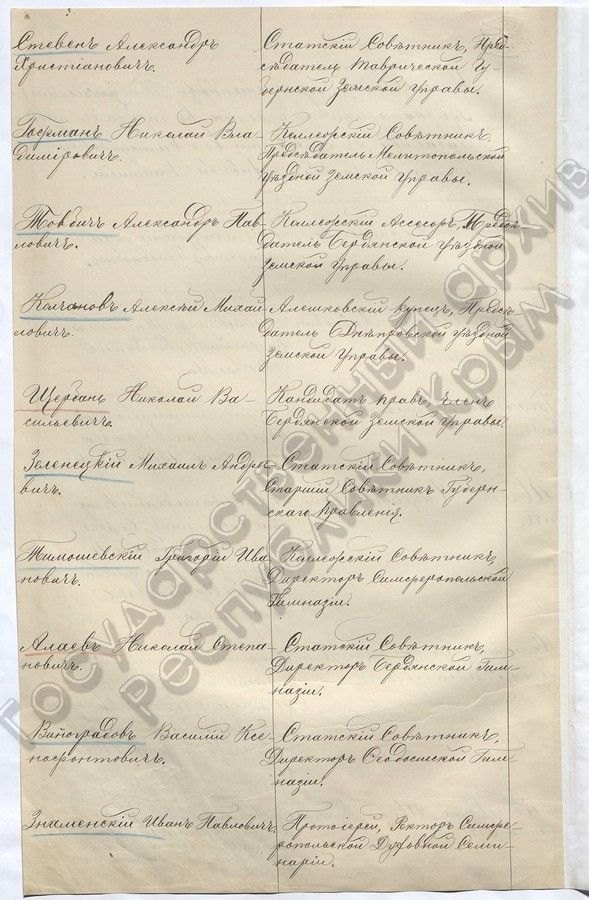 Стевенъ Александръ
Христіановичъ.
Статскій Совѣтникъ, Пред-
сѣдатель Таврической Гу-
бернской Земской Управы.
Гофманъ Николай Вла-
диміровичъ.
Коллежскій Совѣтникъ,
Предсѣдатель Мелитопольской
уѣздной Земской Управы.
Товбичъ Александръ Пав-
ловичъ.
Коллежскій Ассесоръ, Предсѣ-
датель Бердянской уѣздной
Земской Управы.
Колчановъ Алексѣй Михай-
ловичъ.
Алешковскій купецъ, Предсѣ-
датель Днѣпровской уѣздной
Земской Управы.
Щербань Николай Ва-
сильевичъ.
Кандидатъ правъ, членъ
Бердянской Земской Управы
Зеленецкій Михаилъ Андре-
евичъ.
Статскій Совѣтникъ,
Старшій Совѣтникъ Губерн-
скаго Правленія.
Тимошевскій Григорій Ива-
новичъ.
Коллежскій Совѣтникъ,
Директоръ Симферопольской
Гимназіи.
Алаевъ Николай Степа-
новичъ.
Статскій Совѣтникъ,
Директоръ Бердянской Гим-
назіи.
Виноградовъ Василій Ксе-
нофонтовичъ.
Статскій Совѣтникъ,
Директоръ Ѳеодосійской Гим-
назіи.
Знаменскій Иванъ Павловичъ
Протоіерей, Ректоръ Симфе-
ропольской Духовной Семи-
наріи.
Государственный архив
Республики Крым